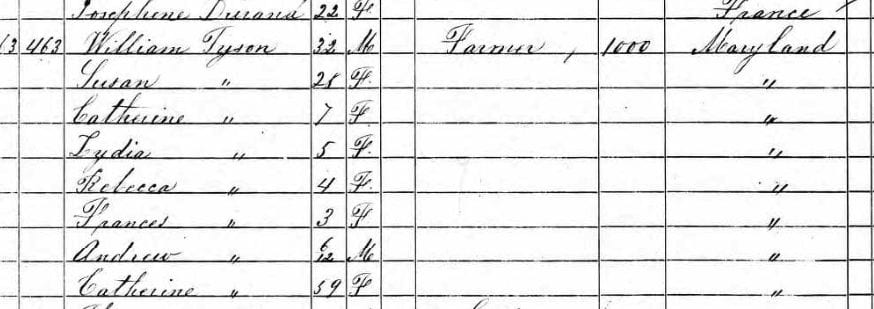 Josephene Durand 22 F France
463 William Tyson 32 M Farmer, 1000 Maryland
Susan " 28 F. "
Catherine " 7 F. "
Lydia " 5 F. "
Rebecca " 4 F. "
Frances " 3 F "
Andrew " 6/12 M "
Catherine " 59 F "